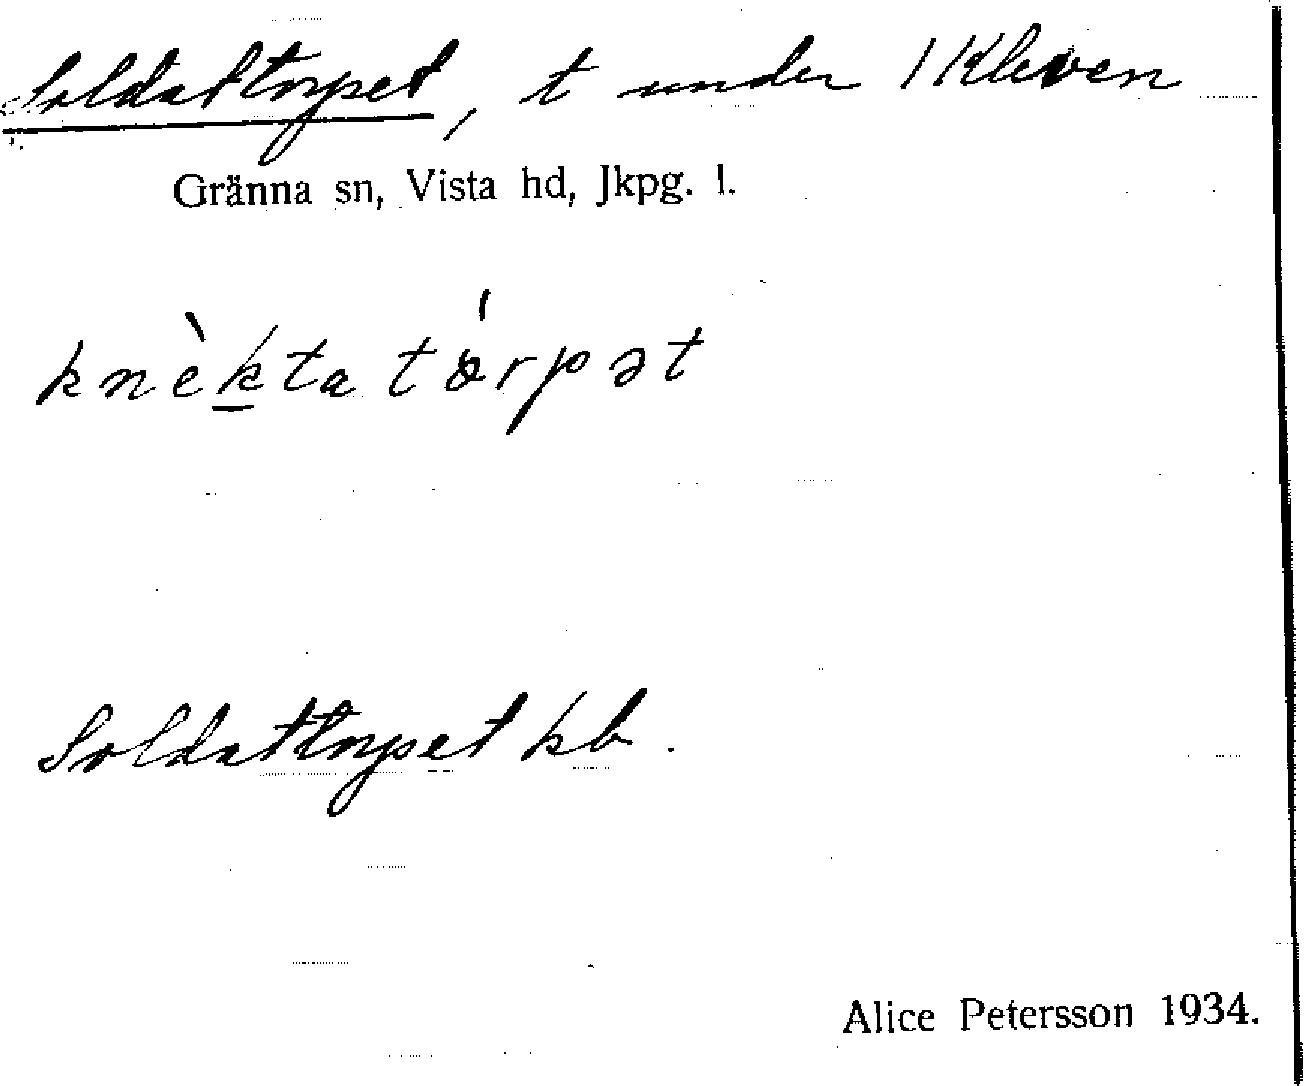 Soldattorpet, t under 1 Kleven
Gränna sn, Vista hd, Jkpg. l.
knèktatórpət
Soldattorpet kb.
Alice Petersson 1934.